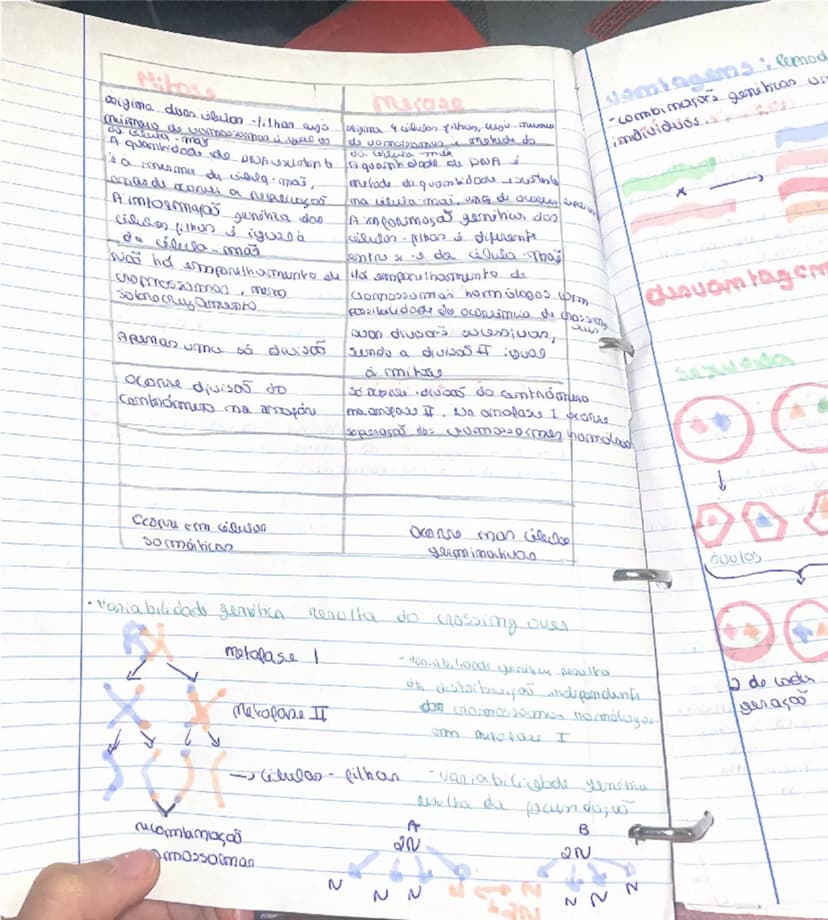 Mitose
origina duas células-filhas cujo
número de cromossomas é igual ao
da célula-mãe
A quantidade de DNA existente
é a mesma da célula-mãe,
antes de ocorrer a replicação
A informação genética das
células filhas é igual à
da célula-mãe
Não há emparelhamento de
cromossomas, nem
sobrecruzamento
Apenas uma só divisão
Ocorre divisão do
centrómero na anáfase
Ocorre em células
somáticas
Meiose
origina 4 células filhas, cujo número
de cromossomas é metade do
da célula mãe
A quantidade de DNA é
metade da quantidade existente
na célula mãe, antes de ocorrer
A informação genética das
células-filhas é diferente
entre si e da célula-mãe
Há emparelhamento de
cromossomas homólogos com
possibilidade de ocorrência de crossing
over
duas divisões sucessivas,
sendo a divisão II igual
à mitose
só ocorre divisão do centrómero
na anáfase II. Na anáfase I ocorre
separação dos cromossomas homólogos
Ocorre nas células
germinativas
• Variabilidade genética resulta do crossing over
metafase I
Metafase II
→ células-filhas
recombinação
cromossomas
- Variabilidade genética resulta
da distribuição independente
dos cromossomas homólogos
em I
- variabilidade genética
resulta da fecundação
A
2N
N N N N
B
2N
N N N
vantagens:
- combinação genéticas
indivíduos
x
desvantagem
sexuada
óvulos
2 de cada
geração